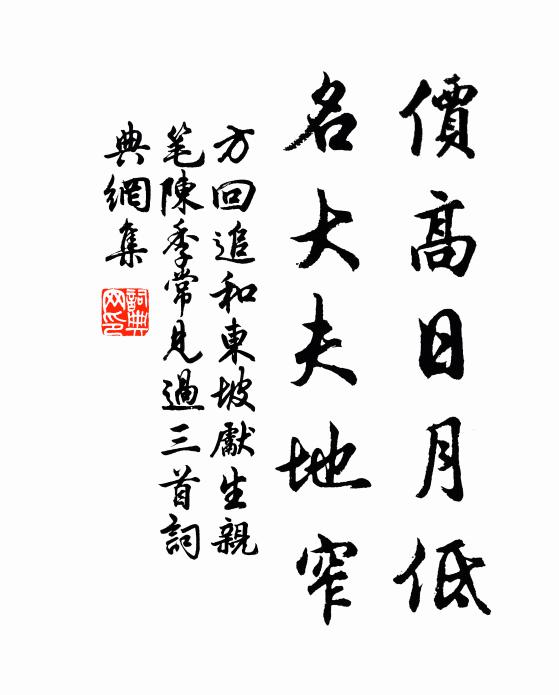 價高日月低
名大夫地窄
方回追和東坡獻生親
笔陳季常見過三首詞
典網集
詞典
网印